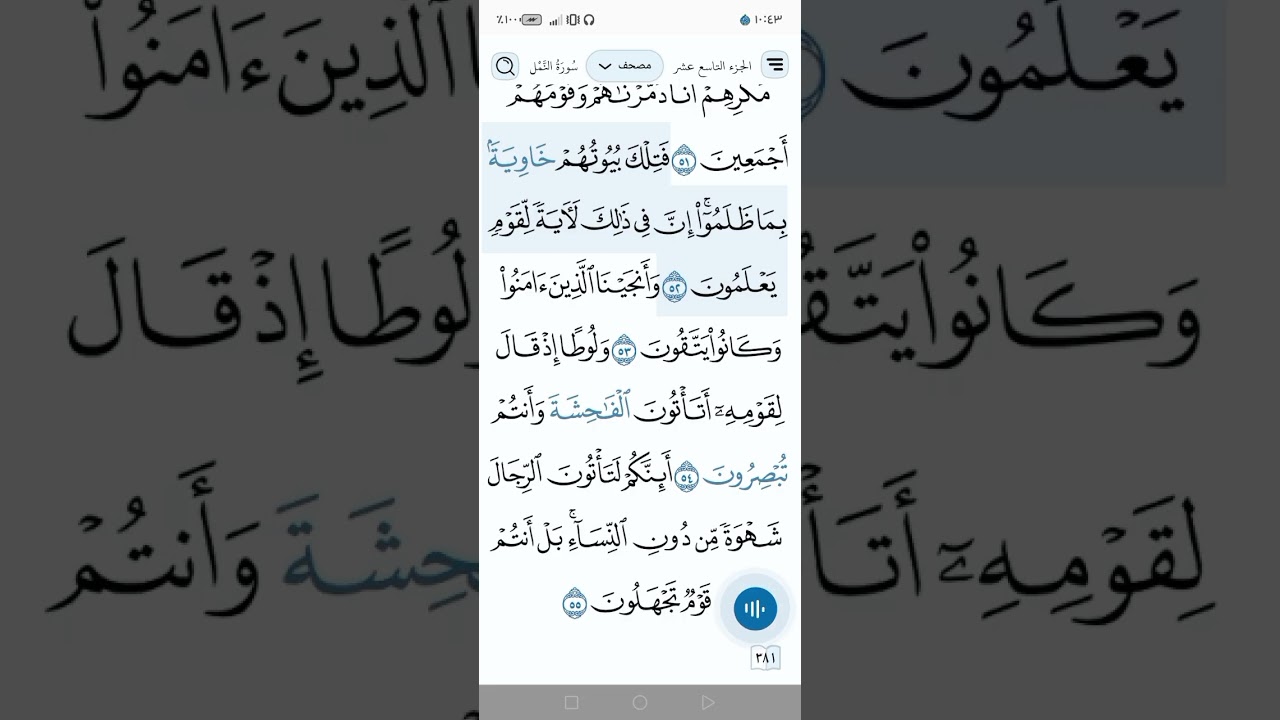 ١٠:٤٣ ٪١٠٠
الجزء التاسع عشر مصحف سُورَةُ النَّمْل
مَكْرِهِمْ أَنَّا دَمَّرْنَٰهُمْ وَقَوْمَهُمْ
أَجْمَعِينَ ٥١ فَتِلْكَ بُيُوتُهُمْ خَاوِيَةَۢ
بِمَا ظَلَمُوٓا۟ۚ إِنَّ فِى ذَٰلِكَ لَـَٔايَةً لِّقَوْمٍ
يَعْلَمُونَ ٥٢ وَأَنجَيْنَا ٱلَّذِينَ ءَامَنُوا۟
وَكَانُوا۟ يَتَّقُونَ ٥٣ وَلُوطًا إِذْ قَالَ
لِقَوْمِهِۦٓ أَتَأْتُونَ ٱلْفَٰحِشَةَ وَأَنتُمْ
تُبْصِرُونَ ٥٤ أَئِنَّكُمْ لَتَأْتُونَ ٱلرِّجَالَ
شَهْوَةً مِّن دُونِ ٱلنِّسَآءِۚ بَلْ أَنتُمْ
قَوْمٌ تَجْهَلُونَ ٥٥
٣٨١